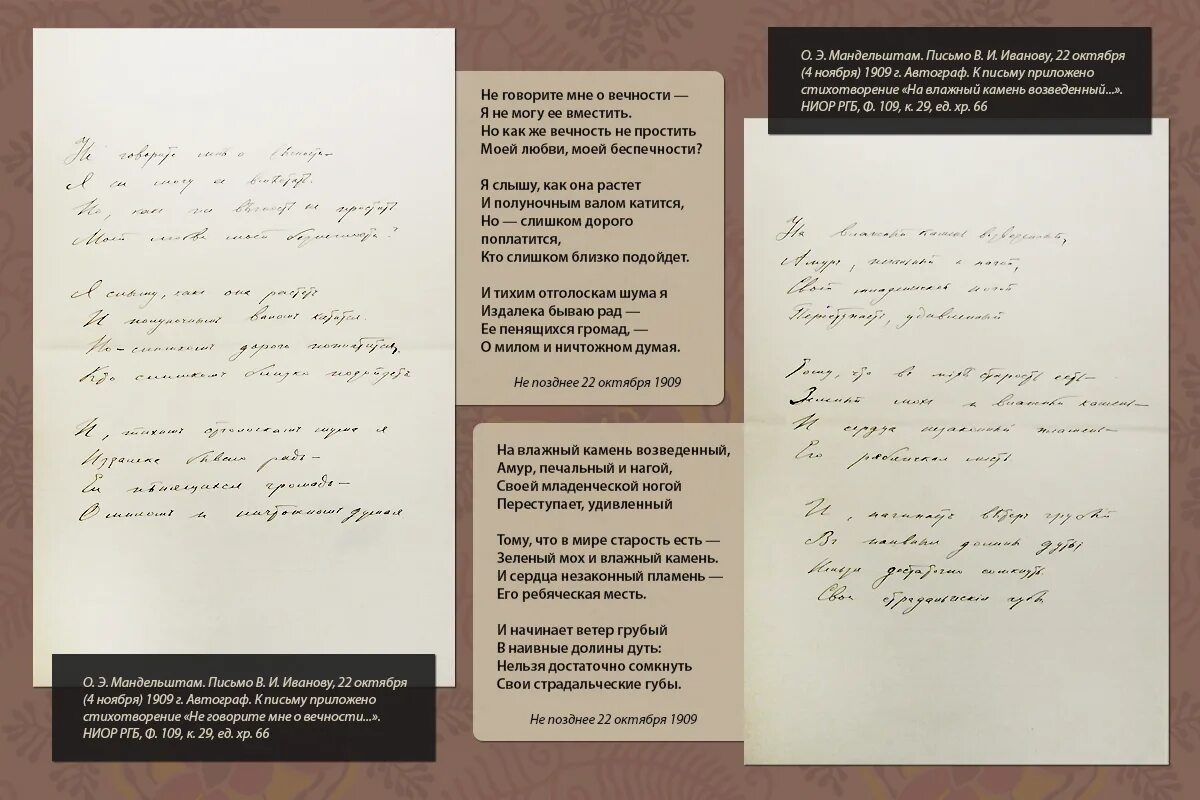 Не говорите мнѣ о вѣчности—
Я не могу ее вмѣстить.
Но, какъ же вѣчность не простить
Моей любви моей безпечности?
Я слышу, какъ она растетъ
И полуночнымъ валомъ катится.
Но—слишкомъ дорого поплатится,
Кто слишкомъ близко подойдетъ
И, тихимъ отголоскамъ шума я
Издалека бываю радъ—
Ея пѣнящихся громадъ—
О миломъ и ничтожномъ думая
О. Э. Мандельштам. Письмо В. И. Иванову, 22 октября
(4 ноября) 1909 г. Автограф. К письму приложено
стихотворение «Не говорите мне о вечности...».
НИОР РГБ, Ф. 109, к. 29, ед. хр. 66
Не говорите мне о вечности —
Я не могу ее вместить.
Но как же вечность не простить
Моей любви, моей беспечности?
Я слышу, как она растет
И полуночным валом катится,
Но — слишком дорого
поплатится,
Кто слишком близко подойдет.
И тихим отголоскам шума я
Издалека бываю рад —
Ее пенящихся громад, —
О милом и ничтожном думая.
Не позднее 22 октября 1909
На влажный камень возведенный,
Амур, печальный и нагой,
Своей младенческой ногой
Переступает, удивленный
Тому, что в мире старость есть —
Зеленый мох и влажный камень.
И сердца незаконный пламень —
Его ребяческая месть.
И начинает ветер грубый
В наивные долины дуть:
Нельзя достаточно сомкнуть
Свои страдальческие губы.
Не позднее 22 октября 1909
О. Э. Мандельштам. Письмо В. И. Иванову, 22 октября
(4 ноября) 1909 г. Автограф. К письму приложено
стихотворение «На влажный камень возведенный...».
НИОР РГБ, Ф. 109, к. 29, ед. хр. 66
На влажный камень возведенный,
Амуръ, печальный и нагой,
Своей младенческой ногой
Переступаетъ, удивленный
Тому, что въ мірѣ старость есть—
Зеленый мохъ и влажный камень—
И сердца незаконный пламень—
Его ребяческая месть
И, начинаетъ вѣтеръ грубый
Въ наивныя долины дуть;
Нельзя достаточно сомкнуть
Свои страдальческія губы